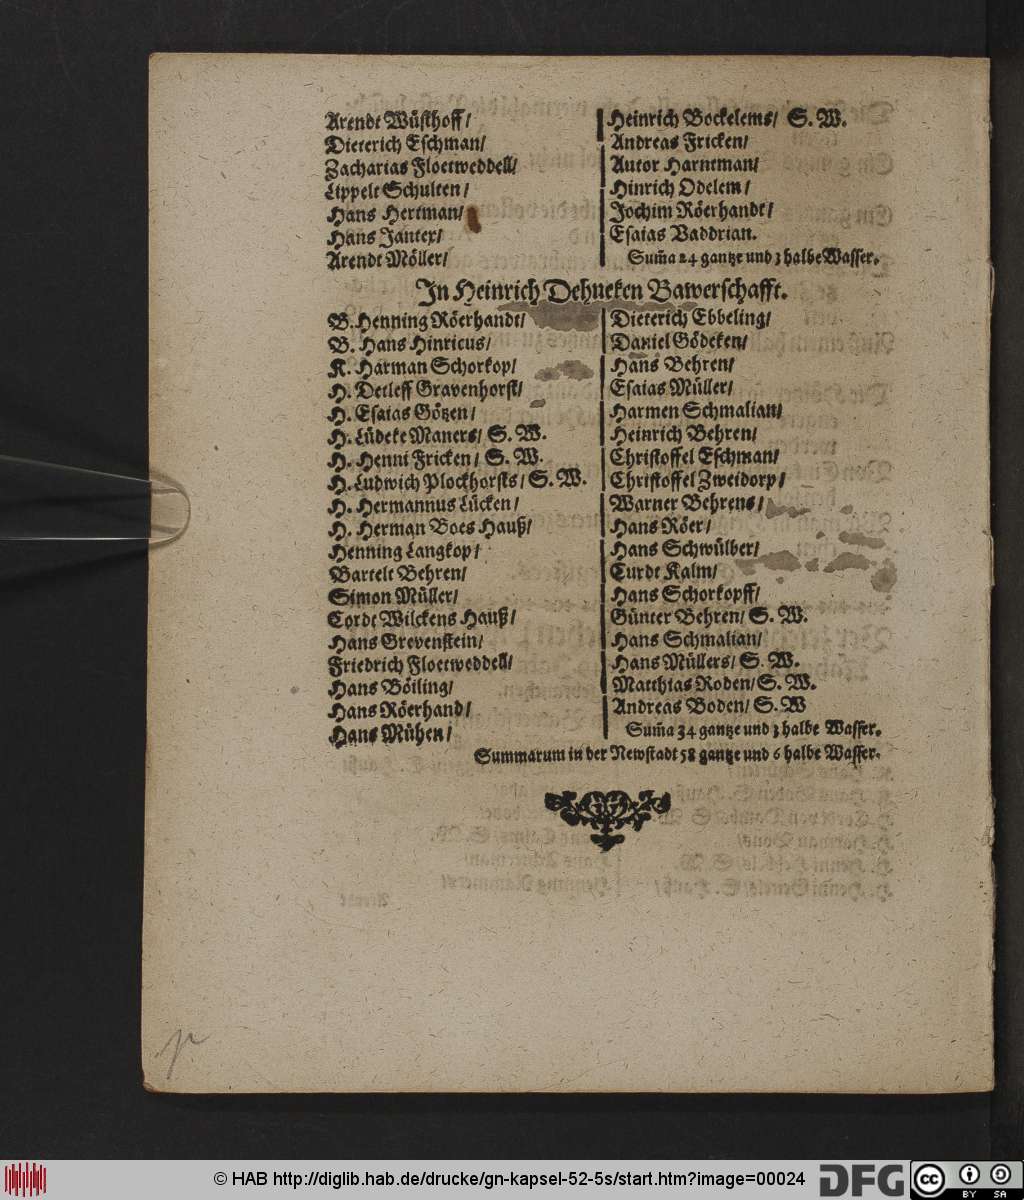 Arendt Wüsthoff/
Dieterich Eschman/
Zacharias Floetweddell/
Lippelt Schulten/
Hans Hertman/
Hans Jantex/
Arendt Möller/
Heinrich Bockelems/ S. W.
Andreas Fricken/
Autor Harntman/
Hinrich Odelem/
Jochim Röerhandt/
Esaias Vaddrian.
Sum̃a 24 gantze und 3 halbe Wasser.
In Heinrich Dehneken Bawerschafft.
B. Henning Röerhandt/
B. Hans Hinricus/
K. Harman Schorkop/
H. Detleff Gravenhorst/
H. Esaias Götzen/
H. Lüdeke Maners/ S. W.
H. Henni Fricken/ S. W.
H. Ludwich Plockhorsts/ S. W.
H. Hermannus Lücken/
H. Herman Boes Hauß/
Henning Langkop/
Bartelt Behren/
Simon Müller/
Cordt Wilckens Hauß/
Hans Grevenstein/
Friedrich Floetweddell/
Hans Böiling/
Hans Röerhand/
Hans Mühen/
Dieterich Ebbeling/
Daniel Gödeken/
Hans Behren/
Esaias Müller/
Harmen Schmalian/
Heinrich Behren/
Christoffel Eschman/
Christoffel Zweidorp/
Warner Behrens/
Hans Röer/
Hans Schwülber/
Curdt Kalm/
Hans Schorkopff/
Günter Behren/ S. W.
Hans Schmalian/
Hans Müllers/ S. W.
Matthias Roden/ S. W.
Andreas Boden/ S. W
Sum̃a 34 gantze und 3 halbe Wasser.
Summarum in der Newstadt 58 gantze und 6 halbe Wasser.
© HAB http://diglib.hab.de/drucke/gn-kapsel-52-5s/start.htm?image=00024
DFG
cc BY SA